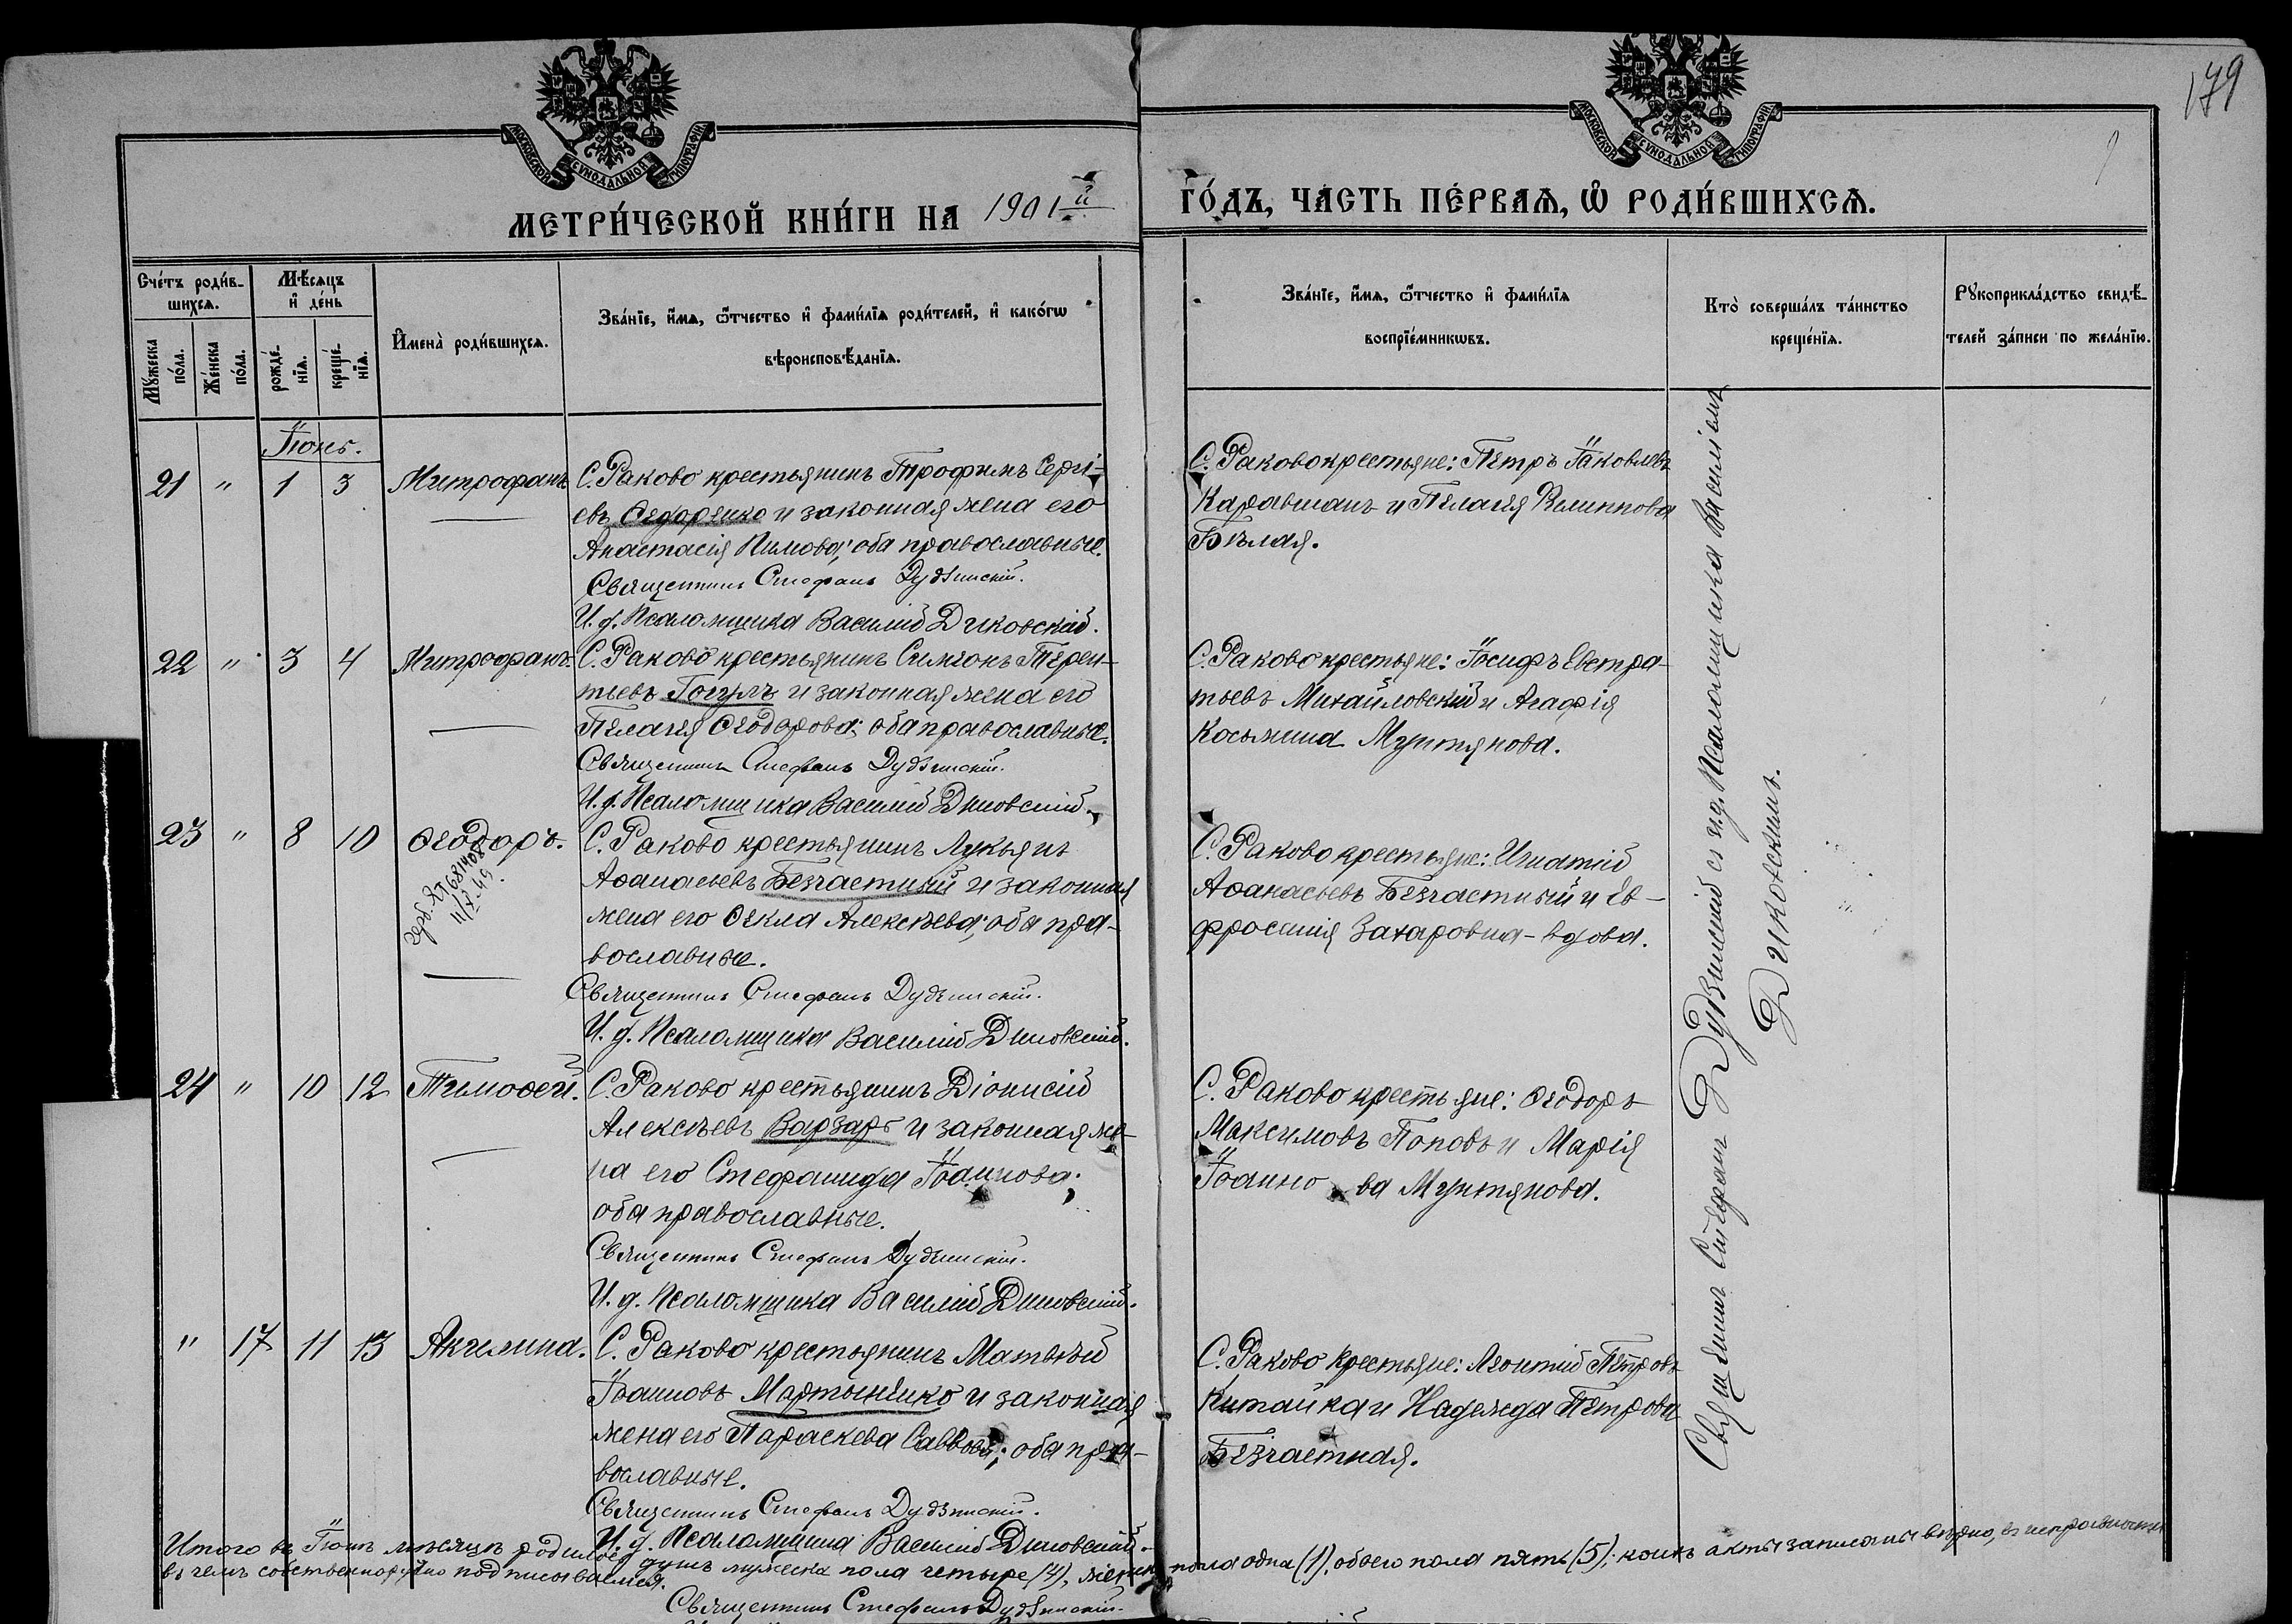 179
МОСКОВСКОЙ СУНОДАЛЬНОЙ ТИПОГРАФІИ
МОСКОВСКОЙ СУНОДАЛЬНОЙ ТИПОГРАФІИ
МЕТРИ́ЧЕСКОЙ КНИ́ГИ НА 1901 й
ГО́ДЪ, ЧА́СТЬ ПЕ́РВАѦ, Ѡ҆ РОДИ́ВШИХСѦ.
Сче́тъ роди́в-
шихсѧ.
Мѣ́сѧцъ
и҆ де́нь
Мꙋ́жеска
по́ла.
Же́нска
по́ла.
рожде́-
нїѧ.
креще́-
нїѧ.
И҆мена̀ роди́вшихсѧ.
Зва́нїе, и҆́мѧ, ѻ҆́тчество и҆ фами́лїѧ роди́телей, и҆ како́гѡ
вѣроисповѣ́данїѧ.
Зва́нїе, и҆́мѧ, ѻ҆́тчество и҆ фами́лїѧ
воспрїе́мникѡвъ.
Кто̀ соверша́лъ та́инство
креще́нїѧ.
Рꙋкоприкла́дство свидѣ́-
телей за́писи по жела́нїю.
Іюнь.
21 " 1 3 Митрофанъ С. Раково крестьянинъ Трофимъ Сергі-
евъ Ѳедоренко и законная жена его
Анастасія Пимова; оба православные.
Священникъ Стефанъ Дудзинскій.
И. д. Псаломщика Василій Диковскій.
С. Раково крестьяне: Петръ Іаковлевъ
Каравманъ и Пелагія Филиппова
Бѣлая.
22 " 3 4 Митрофанъ. С. Раково крестьянинъ Симеонъ Терен-
тьевъ Гогулъ и законная жена его
Пелагія Ѳеодорова; оба православные.
Священникъ Стефанъ Дудзинскій.
И. д. Псаломщика Василій Диковскій.
С. Раково крестьяне: Іосифъ Евстра-
тьевъ Михайловскій и Агафія
Косьмина Мунтянова.
23 " 8 10 Ѳеодоръ. С. Раково крестьянинъ Лукьянъ
Аѳанасьевъ Безчастный и законная
жена его Ѳекла Алексѣева; оба пра-
вославные.
Священникъ Стефанъ Дудзинскій.
И. д. Псаломщика Василій Диковскій.
681408
11/X 49.
С. Раково крестьяне: Игнатій
Аѳанасьевъ Безчастный и Ев-
фросинія Захаровна - вдова.
24 " 10 12 Тимоѳей. С. Раково крестьянинъ Діонисій
Алексѣевъ Варзаръ и законная же-
на его Стефанида Іоаннова;
оба православные.
Священникъ Стефанъ Дудзинскій.
И. д. Псаломщика Василій Диковскій.
С. Раково крестьяне: Ѳеодоръ
Максимовъ Поповъ и Марія
Іоанно ва Мунтянова.
" 17 11 13 Акилина. С. Раково крестьянинъ Матвѣй
Іоанновъ Мартыненко и законная
жена его Параскева Саввова; оба пра-
вославные.
Священникъ Стефанъ Дудзинскій.
И. д. Псаломщика Василій Диковскій.
С. Раково крестьяне: Леонтій Петровъ
Китайка и Надежда Петрова
Безчастная.
Священникъ Стефанъ Дудзинскій съ и. д. Псаломщика Василіемъ
Диковскимъ.
Итого въ Іюнѣ мѣсяцѣ родилось душъ мужеска пола четыре (4), женска пола одна (1), обоего пола пять (5); коихъ акты записаны вѣрно, въ исправности
въ чемъ собственноручно подписываемся.
Священникъ Стефанъ Дудзинскій.